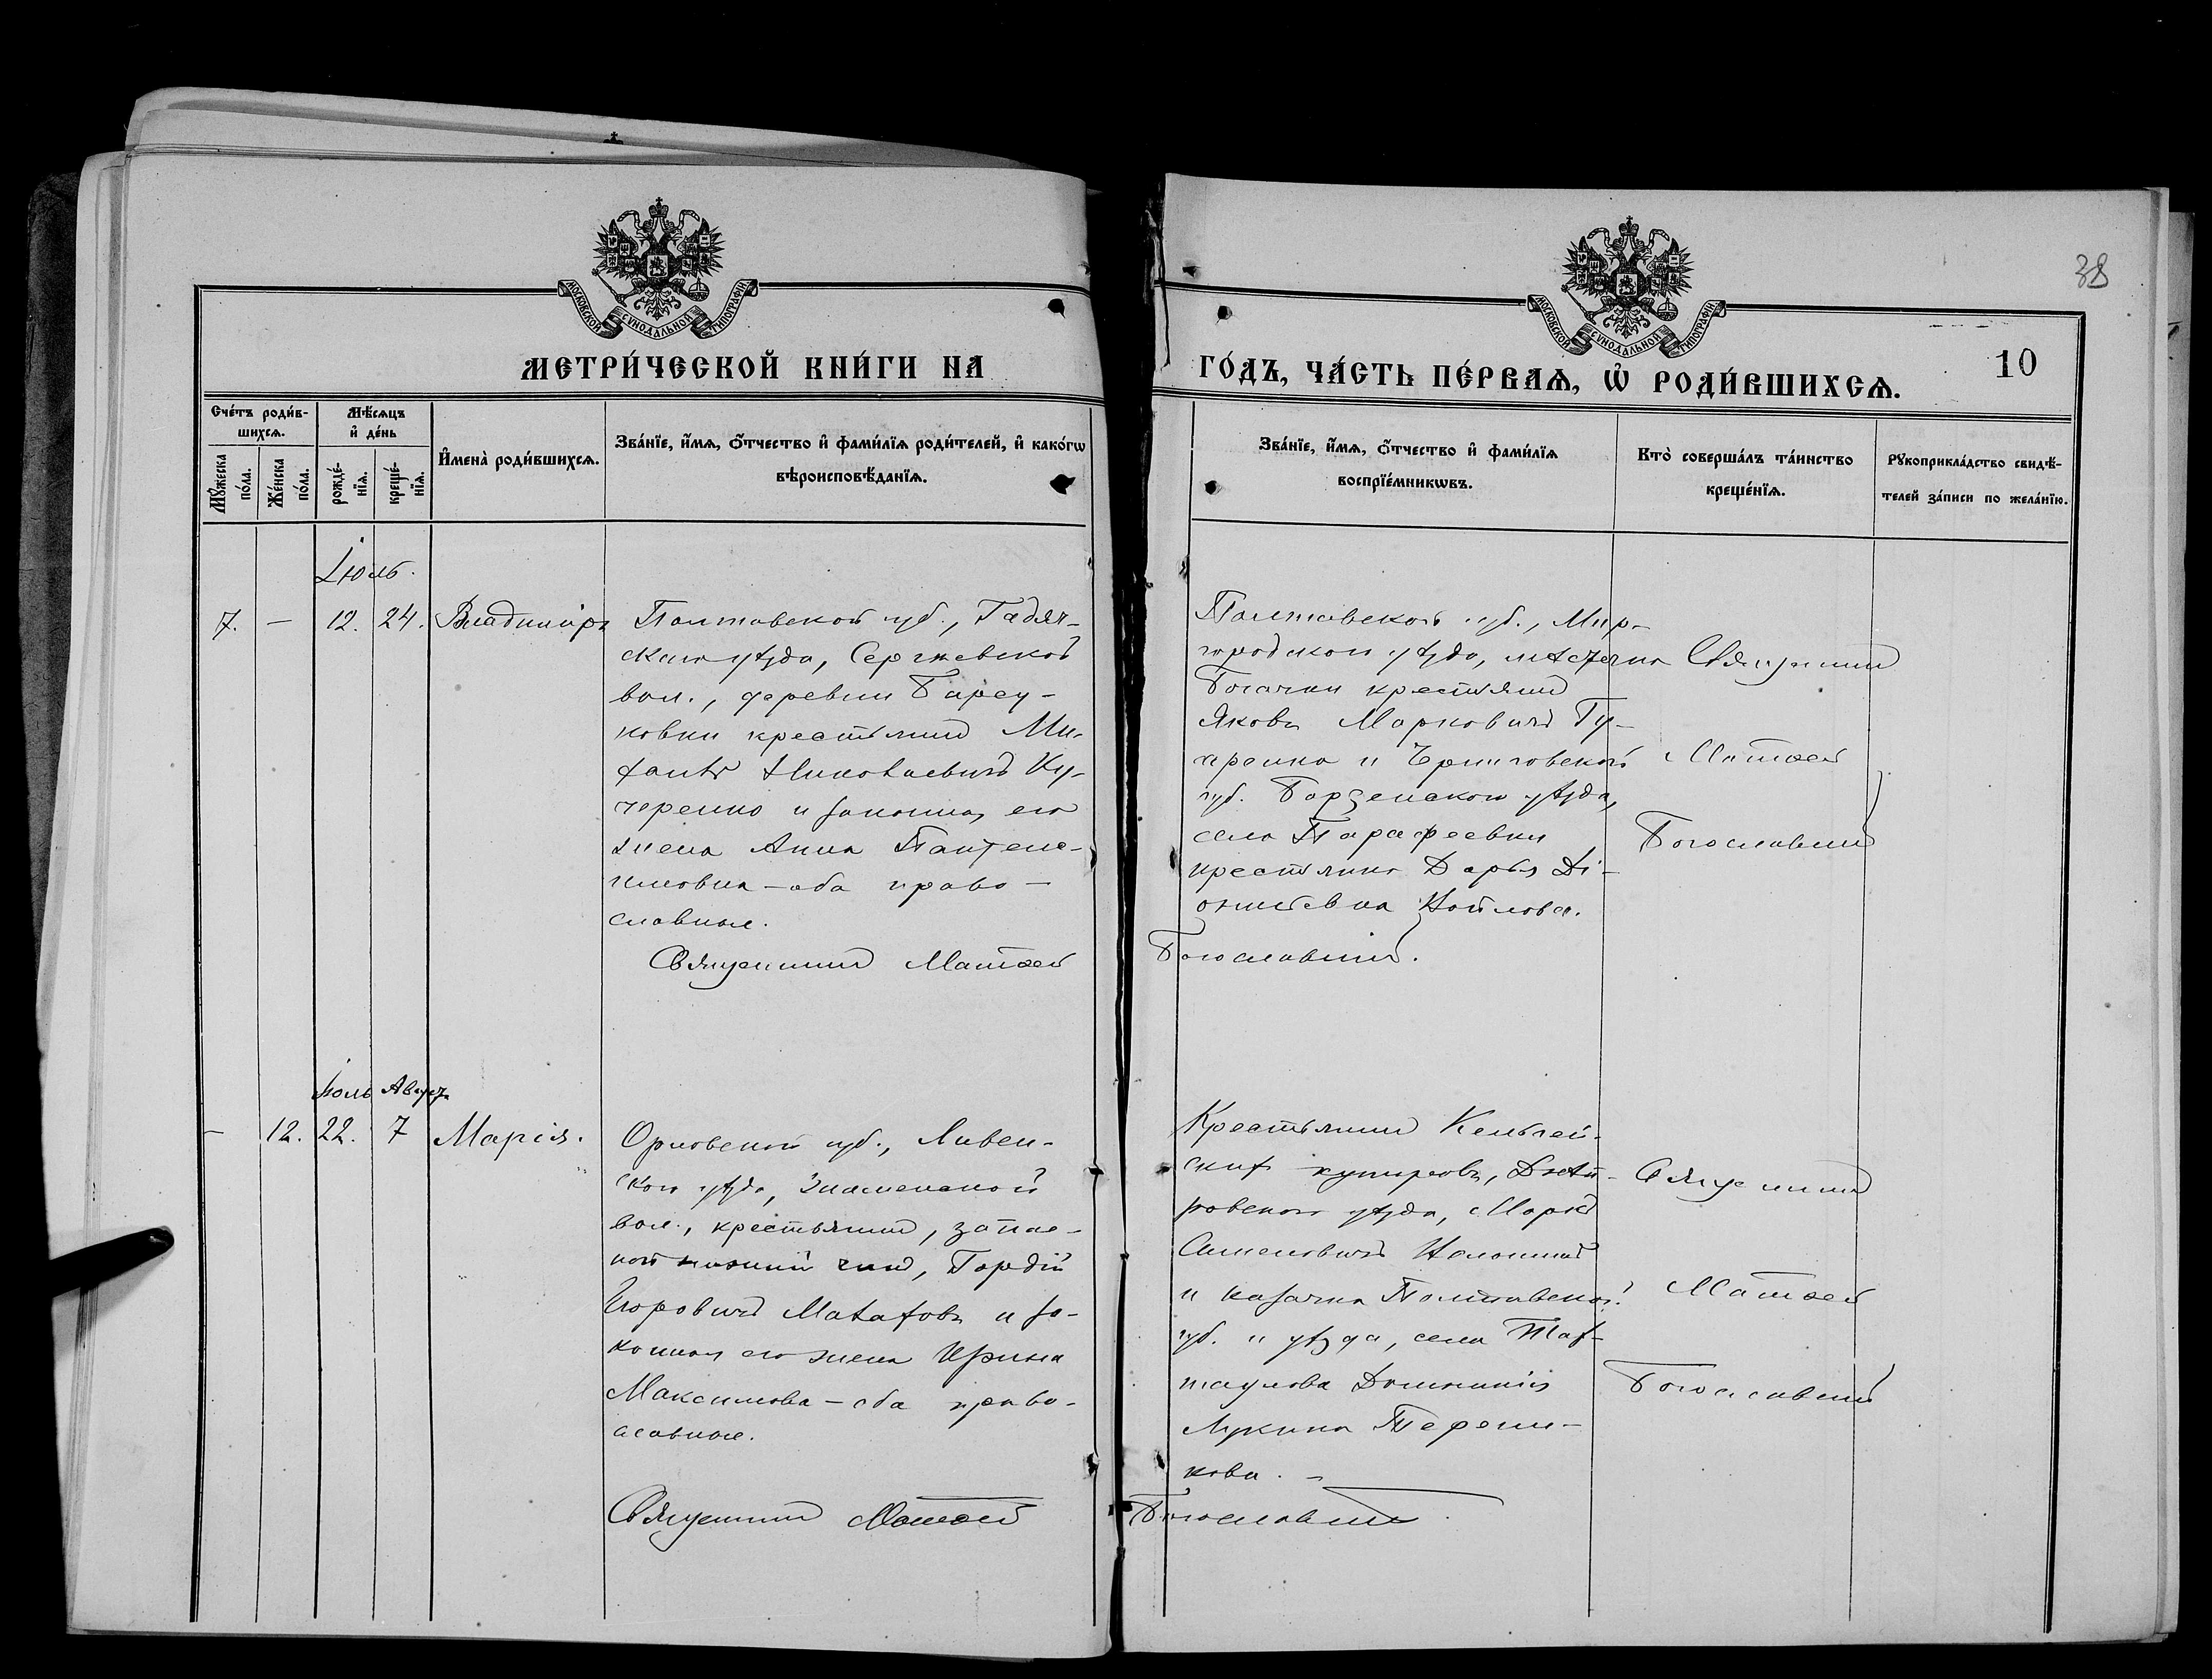 38
МОСКОВСКОЙ СУНОДАЛЬНОЙ ТИПОГРАФІИ
МОСКОВСКОЙ СУНОДАЛЬНОЙ ТИПОГРАФІИ
МЕТРИ́ЧЕСКОЙ КНИ́ГИ НА
ГО́ДЪ, ЧА́СТЬ ПЕ́РВАѦ, Ѽ РОДИ́ВШИХСѦ.
10
Сче́тъ роди́в-
шихсѧ.
Мѣ́сѧцъ
и҆ де́нь
Мꙋ́жеска
по́ла.
Же́нска
по́ла.
рожде́-
нїѧ.
креще́-
нїѧ.
И҆мена̀ роди́вшихсѧ.
Зва́нїе, и҆́мѧ, ѻ҆́тчество и҆ фами́лїѧ роди́телей, и҆ како́гѡ
вѣроисповѣ́данїѧ.
Зва́нїе, и҆́мѧ, ѻ҆́тчество и҆ фами́лїѧ
воспрїе́мникѡвъ.
Кто̀ соверша́лъ та́инство
креще́нїѧ.
Рꙋкоприкла́дство свидѣ́-
телей за́писи по жела́нїю.
Іюль.
7. — 12. 24. Владиміръ
Полтавской губ., Гадяч-
скаго уѣзда, Сергіевской
вол., деревни Барсу-
ковки крестьянинъ Ми-
хаилъ Николаевичъ Ку-
черенко и законная его
жена Анна Пантеле-
имовна — оба право-
славные.
Священникъ Матѳей
Полтавской губ., Мир-
городскаго уѣзда, мѣстечка
Богачки крестьянинъ
Яковъ Марковичъ
и Черниговской
губ. Борзенскаго уѣзда,
села Парафеевки
крестьянка Дарья Ді-
онисіевна
Богословскій.
Священникъ
Матѳей
Богословскій
Іюль Август
— 12. 22. 7 Марія.
Орловской губ., Ливен-
скаго уѣзда, Знаменской
вол., крестьянинъ, запас-
ной нижній чинъ, Гордій
Егоровичъ Малаховъ и за-
конная его жена Ирина
Максимова — оба право-
славные.
Священникъ Матѳей
Крестьянинъ
скихъ хуторовъ, Днѣп-
ровскаго уѣзда, Маркъ
Семеновичъ
и казачка Полтавской
губ. и уѣзда, села Тах-
таулова Домникія
Лукина Тереш-
кова. —
Богословскій.
Священникъ
Матѳей
Богословскій